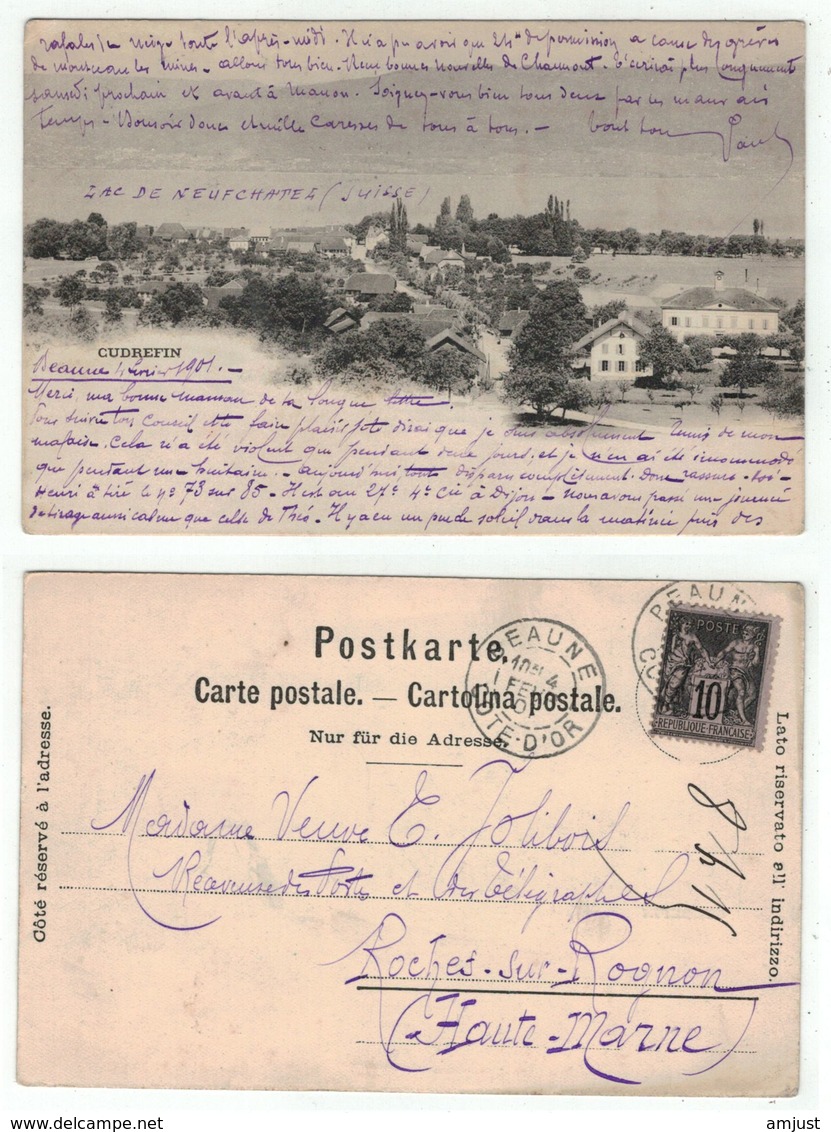 rafales de neige toute l'après-midi. Il n'a pu avoir que 24h de permission a cause des grèves
de Montceau les mines. - allons tous bien. - bonnes nouvelles de Chaumont. T'écrirai plus longuement
samedi prochain et avant à Manon. Soignez-vous bien tous deux par les mauvais
temps - Bonsoir donc et mille caresses de tous à tous. - tout ton Paul
LAC DE NEUFCHATEL (SUISSE)
CUDREFIN
Beaune 1 février 1901. -
Merci, ma bonne maman de ta longue lettre!
suivre ton Conseil et te dirai que je suis absolument remis de mon
malaise. Cela n'a été violent que pendant deux jours, et je n'en ai été incommodé
que pendant une huitaine. - aujourd'hui tout disparu complètement. Donc rassure-toi -
Henri a tiré le n° 73 sur 85. - Il est au 27e 4e Cie à Dijon - nous avons passé une journée
de tirage aussi calme que celle de Théo. - Il y a eu un peu de soleil dans la matinée puis des
Postkarte.
Carte postale. — Cartolina postale.
Nur für die Adresse.
Côté réservé à l'adresse.
Lato riservato all indirizzo.
BEAUNE
1 FEVR
01
COTE-D'OR
BEAUNE
POSTE
10
REPUBLIQUE FRANÇAISE
Madame Veuve E. Jolibois
Receveuse des Postes et des Télégraphes
Roches-sur-Rognon
(Haute-Marne)
amjust